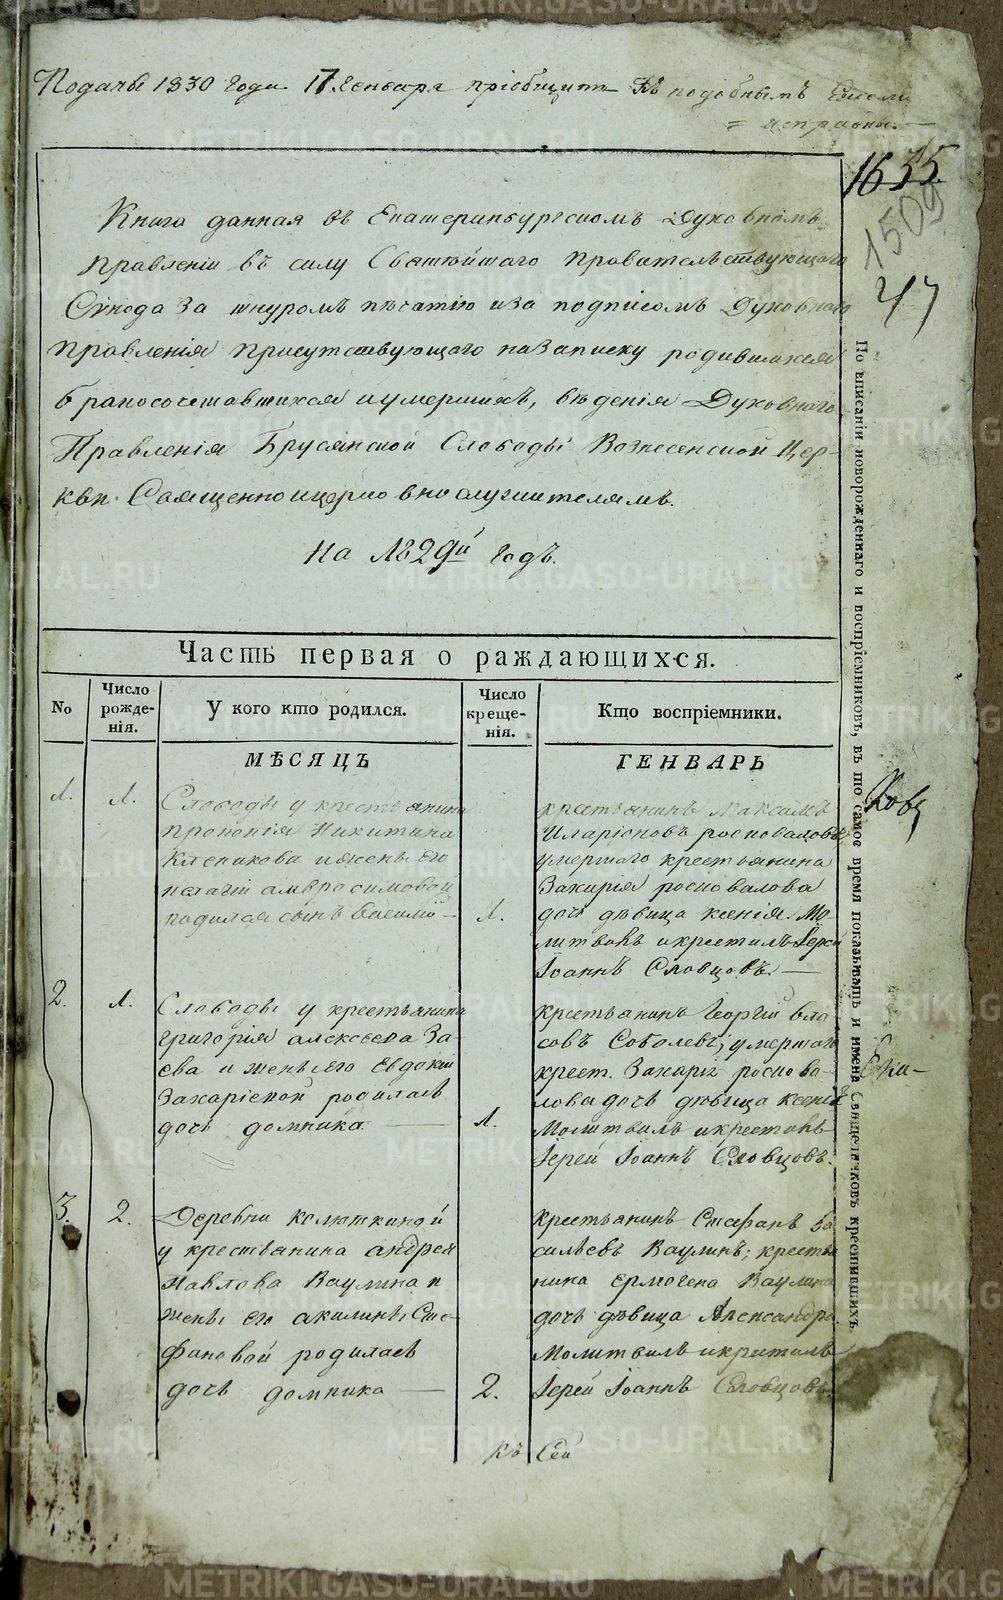 Подачы 1830 года 17 Генваря пріобщить къ подобнымъ
1635
1509
47
Книга данная въ Екатеринбургскомъ Духовномъ
Правленіи въ силу Святѣйшаго Правительствующаго
Сѵнода за шнуромъ печатію иза подписомъ Духовнаго
Правленія присутствующаго назаписку родившихся
бракосочетавшихся иумершихъ, вѣденія Духовнаго
Правленія Брусянской Слободы Вознесенской Цер-
кви Священноицерковнослужителямъ.
На 1829й годъ.
Часть первая о раждающихся.
No
Число рожде-нія.
У кого кто родился.
Число креще-нія.
Кто воспріемники.
МѢСЯЦЪ
ГЕНВАРЬ
1.
1.
Слободы у крестьянина
прокопія Никитина
Клепикова ижены его
пелагіи амвросимовой
родился сынъ Василій —
1.
крестьянинъ Максимъ
Иларіоновъ росковаловъ
умершаго крестьянина
Захарія росковалова
дочь дѣвица ксенія. Мо-
литвилъ икрестилъ Іерей
Іоаннъ Словцовъ. —
2.
1.
Слободы у крестьянина
григорія алексѣева За-
ева и жены его Евдокіи
Захаріевой родилась
дочь домника —
1.
крестьянинъ Георгій вла
совъ Соболевъ, умершаго
крест. Захаріи роскова-
лова дочь дѣвица ксенія
Молитвилъ икрестилъ
Іерей Іоаннъ Словцовъ.
3.
2.
Деревни колюткиной
у крестьянина андрея
Павлова Ваулина и
жены его акилины Сте-
фановой родилась
дочь домника —
2.
крестьянинъ Стефанъ Ва
сильевъ Ваулинъ; крестья
нина ермогена Ваулина
дочь дѣвица Александра.
Молитвилъ икрестилъ
Іерей Іоаннъ Словцовъ.
къ Сей
По вписаніи новорожденнаго и воспріемниковъ, въ то самое время показывать и имена Священниковъ крестившихъ.
METRIKI.GASO-URAL.RU